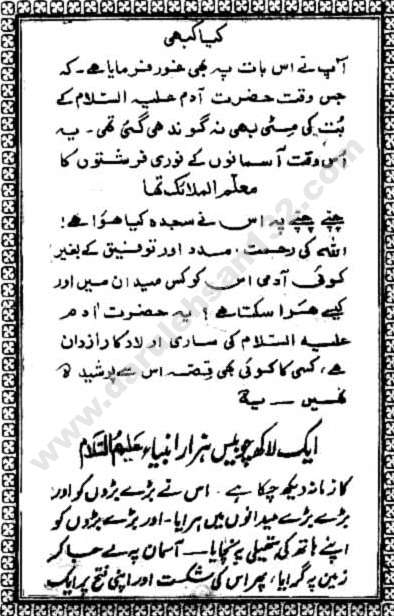 کیا کبھی
آپ نے اس بات پہ بھی غور فرمایا ہے۔ کہ
جس وقت حضرت آدم علیہ السّلام کے
بُت کی مٹی بھی نہ گوندھی گئی تھی۔ یہ
اُس وقت آسمانوں کے نوری فرشتوں کا
معلّم الملائکہ تھا
چپّے چپّے پہ اس نے سجدہ کیا ہوا ہے!
اللہ کی رحمت، مدد اور توفیق کے بغیر
کوئی آدمی اس کو کس میدان میں اور
کیسے ہرا سکتا ہے؟ یہ حضرت آدم
علیہ السّلام کی ساری اولاد کا رازدان
ہے، کسی کا کوئی بھی قصّہ اس سے پوشیدہ
نہیں — یہ
ایک لاکھ چوبیس ہزار انبیاء علیہم السّلام
کا زمانہ دیکھ چکا ہے۔ اس نے بڑے بڑوں کو اور
بڑے بڑے میدانوں میں ہرایا۔ اور بڑے بڑوں کو
اپنے ہاتھ کی ہتھیلی پہ نچایا — آسمان پہ لے جا کر
زمین پر گرایا، پھر اس کی شکست اور اپنی فتح پر ایک
www.darulehsan132.com